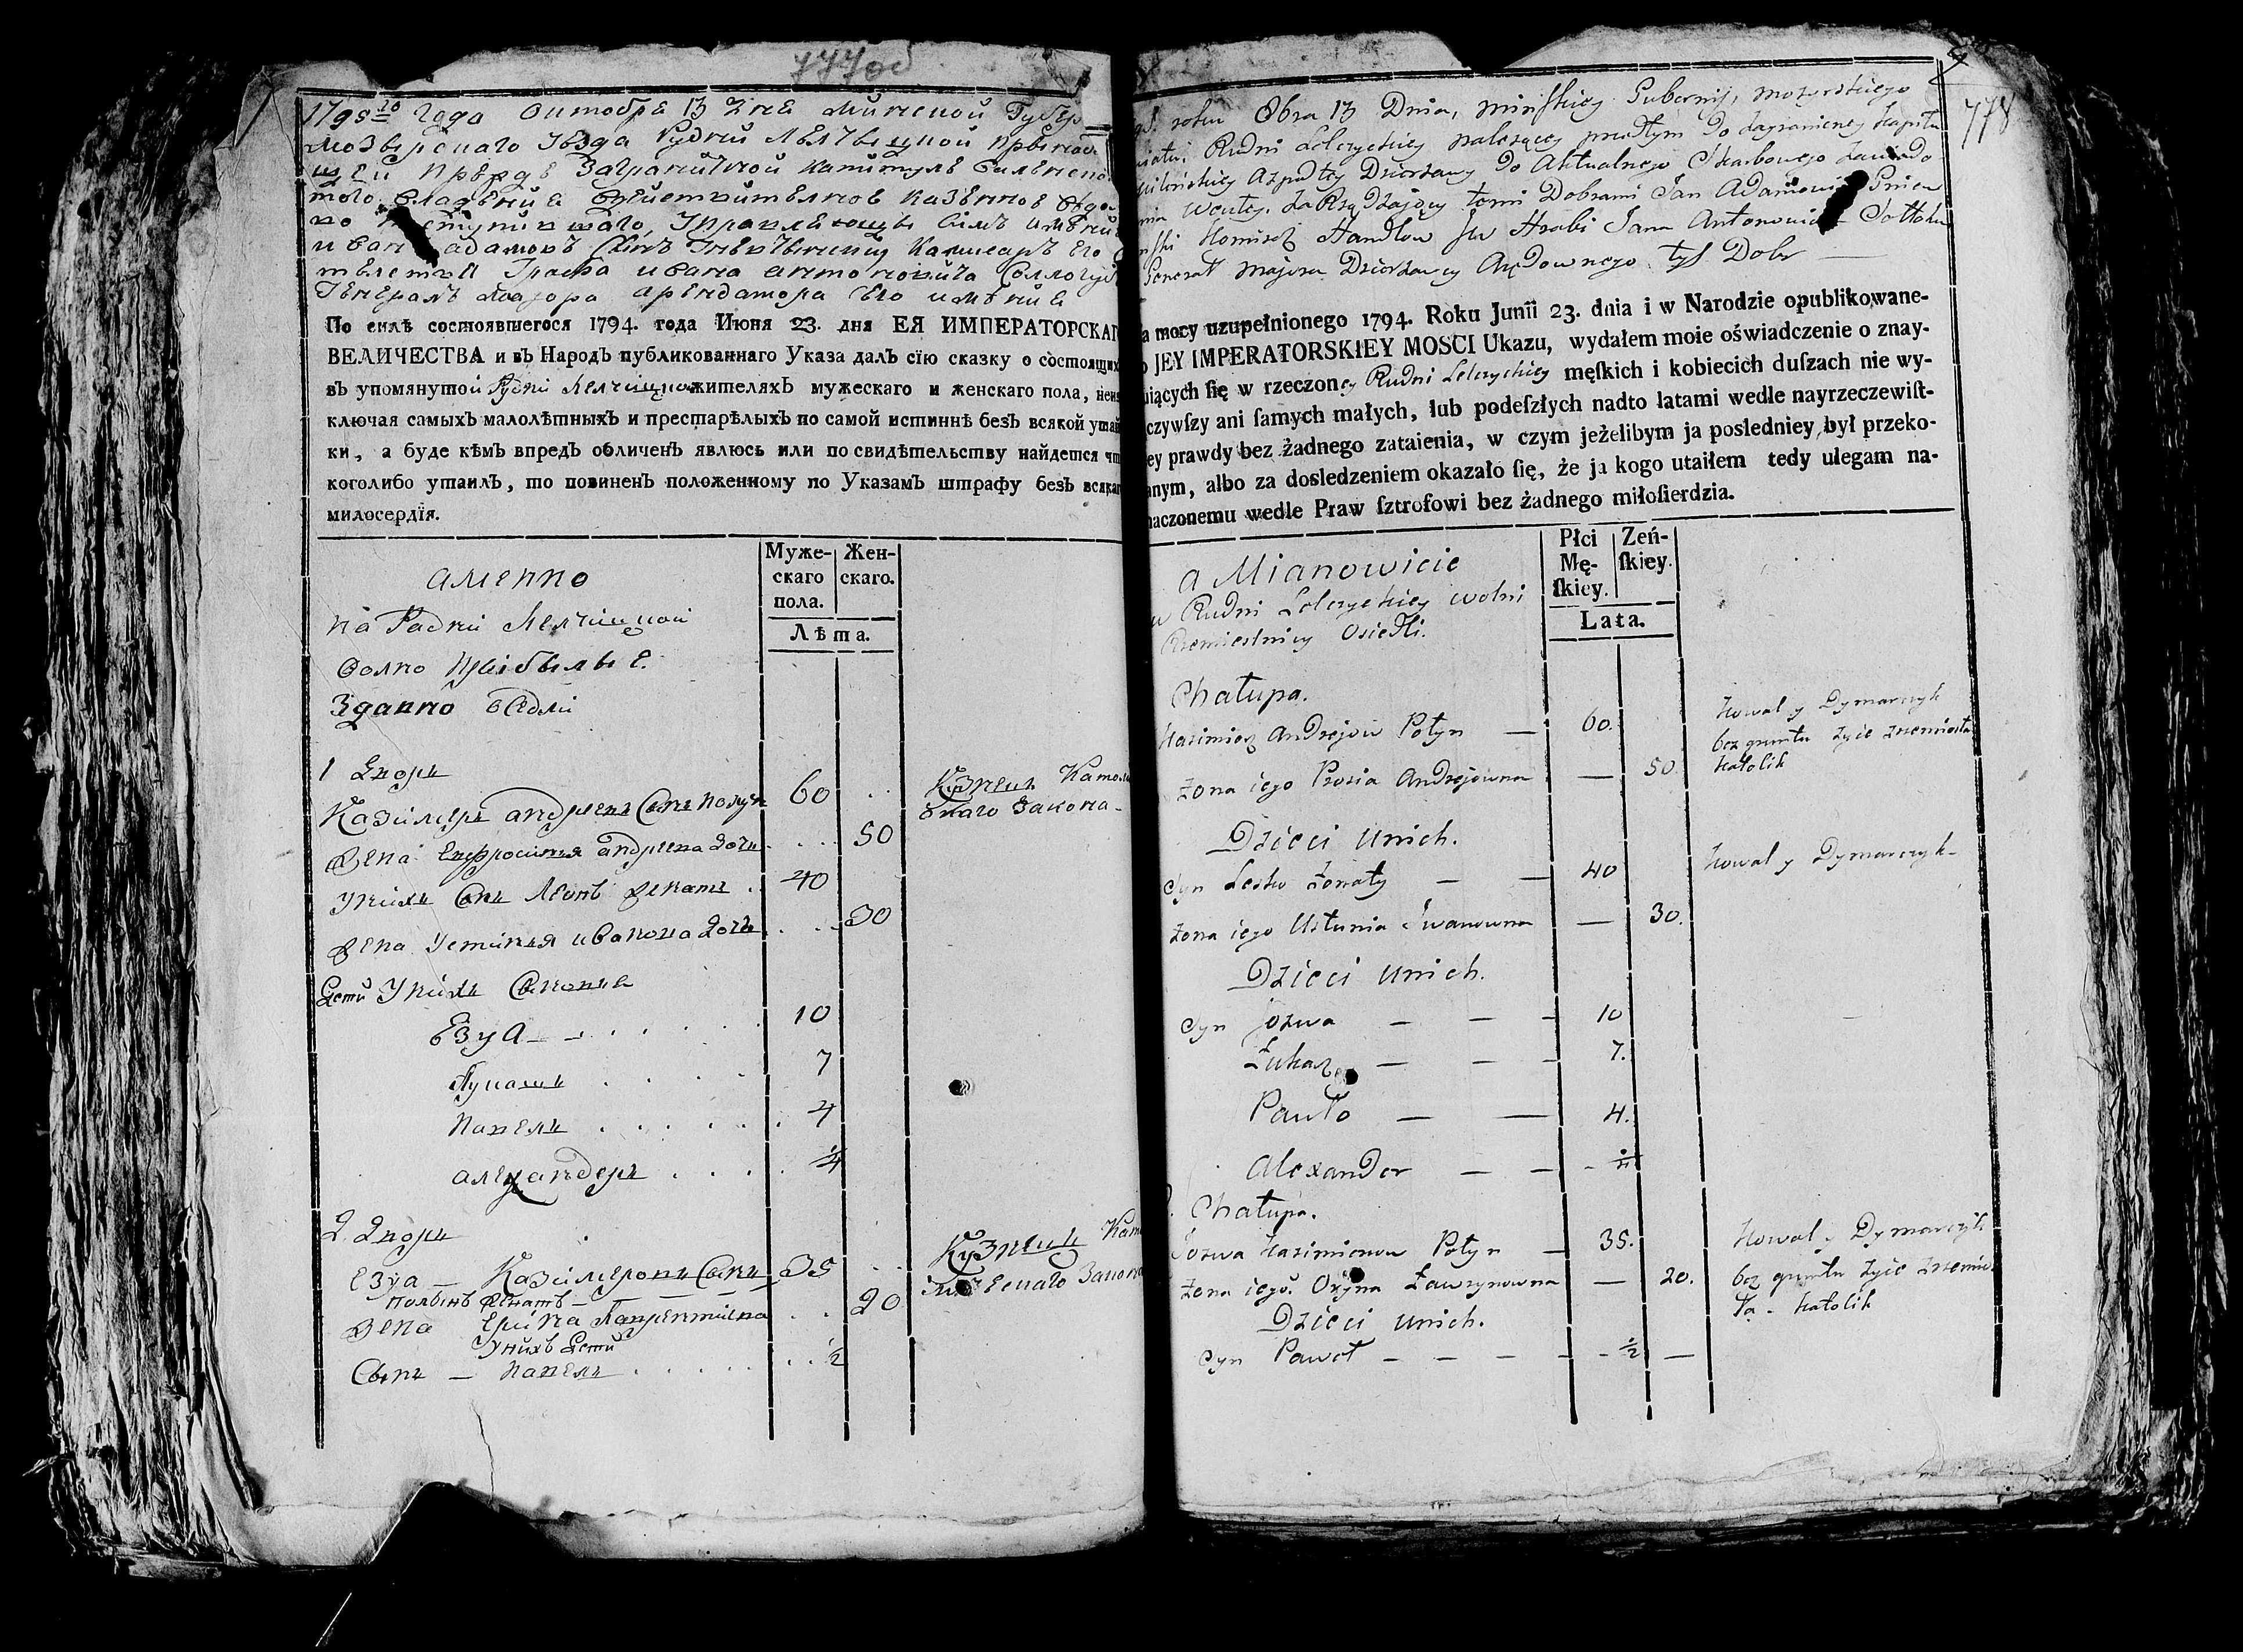 777 об
1795го года Октобра 13 дна Минской Губер
Мозырскаго уѣзда Рудни Лелчыцкой
щей прежде Заграничной капитулѣ
владѣний казеннов
управляющы симъ имѣний
иванъ адамовъ сынъ
Графа ивана антоновича Соллогуб
Генералъ маиора арендатора его имѣния
По силѣ состоявшегося 1794. года Июня 23. дня ЕЯ ИМПЕРАТОРСКАГ
ВЕЛИЧЕСТВА и въ Народъ публикованнаго Указа далъ сїю сказку о состоящих
въ упомянутой Рудни Лелчицко жителяхъ мужескаго и женскаго пола, неис
ключая самыхъ малолѣтныхъ и престарѣлыхъ по самой истиннѣ безъ всякой утай
ки, а буде кѣмъ впредъ обличенъ явлюсь или по свидѣтельству найдется чт
коголибо утаилъ, то повиненъ положенному по Указамъ штрафу безъ всякаг
милосердїя.
Муже-
скаго
пола.
Жен-
скаго.
Лѣта.
аменно
на Радни Лелчицкой
волно прибылые.
Здавно осѣдли
1 дворъ
Казимеръ андреевъ сынъ полын 60 Кузнецъ Като
скаго закона
жена Ефросиния андреева дочь 50
Унихъ сынъ Леонъ женатъ 40
жена Устиния иванова дочь 30
Дети Унихъ сыновья
Езуа 10
Лукашъ 7
Павелъ 4
алеҳандеръ 1/4
2 дворъ
Езуа — Казимеровъ сынъ 35 Кузнецъ Кат
полынъ женатъ закона
жена Ерина Лаврентиева 20
Унихъ дети
сынъ — Павелъ 1/2
9
778
roku 8bra 13 Dnia, Minſkiey Gubernij, Mozyrskiego
Rudni Lelczyckiey należącey przedtym do zagraniczney Kapitu
Wileńskiey Azpadłey Dzierżawy do Aktualnego Skarbowego zawiado
nia weszłey. zaRządzaiący temi Dobrami Jan Adamowicz Gniew
Hrabi Jana Antonowicz Sołłohu
General Majora Dzierżawcy Arędownego tyſ Dobr —
a mocy uzupełnionego 1794. Roku Junii 23. dnia i w Narodzie opublikowane-
o JEY IMPERATORSKIEY MOSCI Ukazu, wydałem moie oświadczenie o znay-
uiących ſię w rzeczoney Rudni Lelczyckiey męſkich i kobiecich duſzach nie wy-
czywſzy ani ſamych małych, lub podeſzłych nadto latami wedle nayrzeczewiſt-
ey prawdy bez żadnego zataienia, w czym jeżelibym ja posledniey był przeko-
anym, albo za dosledzeniem okazało ſię, że ja kogo utaiłem tedy ulegam na-
naczonemu wedle Praw ſztrofowi bez żadnego miłoſierdzia.
Płci
Mę-
ſkiey.
Zeń-
ſkiey.
Lata.
a Mianowicie
w Rudni Lelczyckiey wolni
Rzemieslnicy Osiedli.
Chałupa.
Kazimierz Andrejow Połyn — 60. Kowal y Dymarczyk
bez gruntu żyie zrzemiosła
żona iego Prosia Andrejowna — 50 katolik
Dzieci unich.
Syn Lesko żonaty — — 40 Kowal y Dymarczyk —
żona iego Ustunia Iwanowna — 30.
Dzieci unich.
Syn Jozwa — — — 10
Łukasz — — — 7.
Pawło — — 4.
Alexander — — 1/4
Chałupa.
Jozwa Kazimierow Połyn — 35. Kowal y Dymarczyk
żona iego Oryna Ławrynowna — 20. bez gruntu żyie zrzemios
ła — katolik
Dzieci unich.
Syn Paweł — — — — 1/2 —